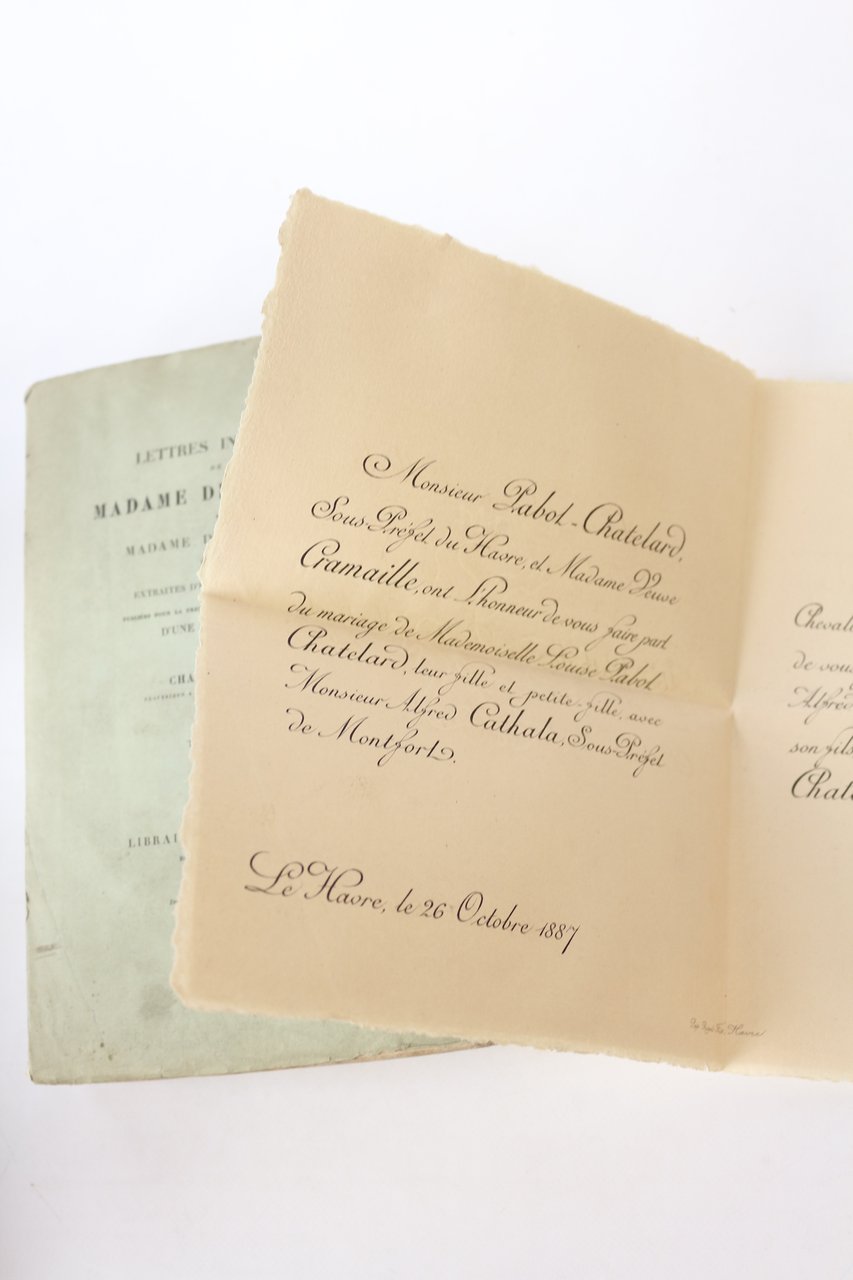 LETTRES
MADAME
MADAME
D'UNE
Monsieur Pabot-Chatelard,
Sous-Préfet du Havre, et Madame Veuve
Cramaille, ont l'honneur de vous faire part
du mariage de Mademoiselle Louise Pabot
Chatelard, leur fille et petite-fille, avec
Monsieur Alfred Cathala, Sous-Préfet
de Montfort.
Le Havre, le 26 Octobre 1887
Havre
de vous
Alfred
son fils